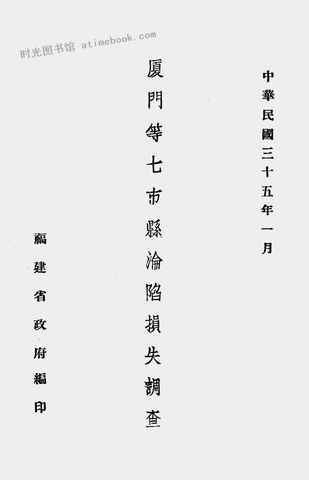 时光图书馆 atimebook.com
中華民國三十五年一月
厦門等七市縣淪陷損失調查
福建省政府編印